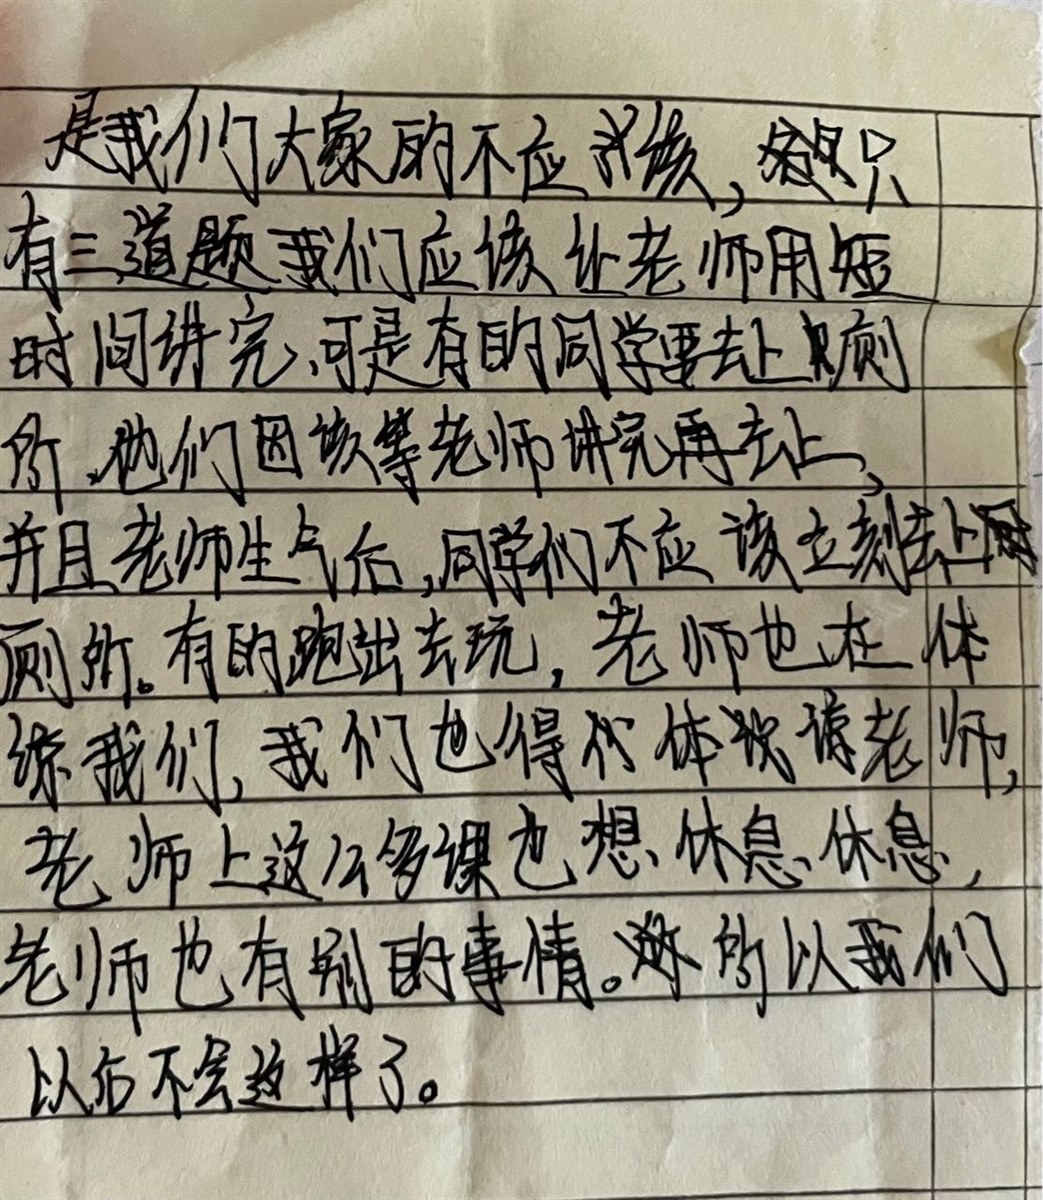 是我们大家的不应该,只
有三道题我们应该让老师用短
时间讲完、可是有的同学要去上厕
所、他们因该等老师讲完再去上、
并且老师生气后,同学们不应该立刻去上
厕所。有的跑出去玩,老师也在体
谅我们,我们也得体谅老师,
老师上这么多课也想、休息、休息,
老师也有别的事情。所以我们
以后不会这样了。